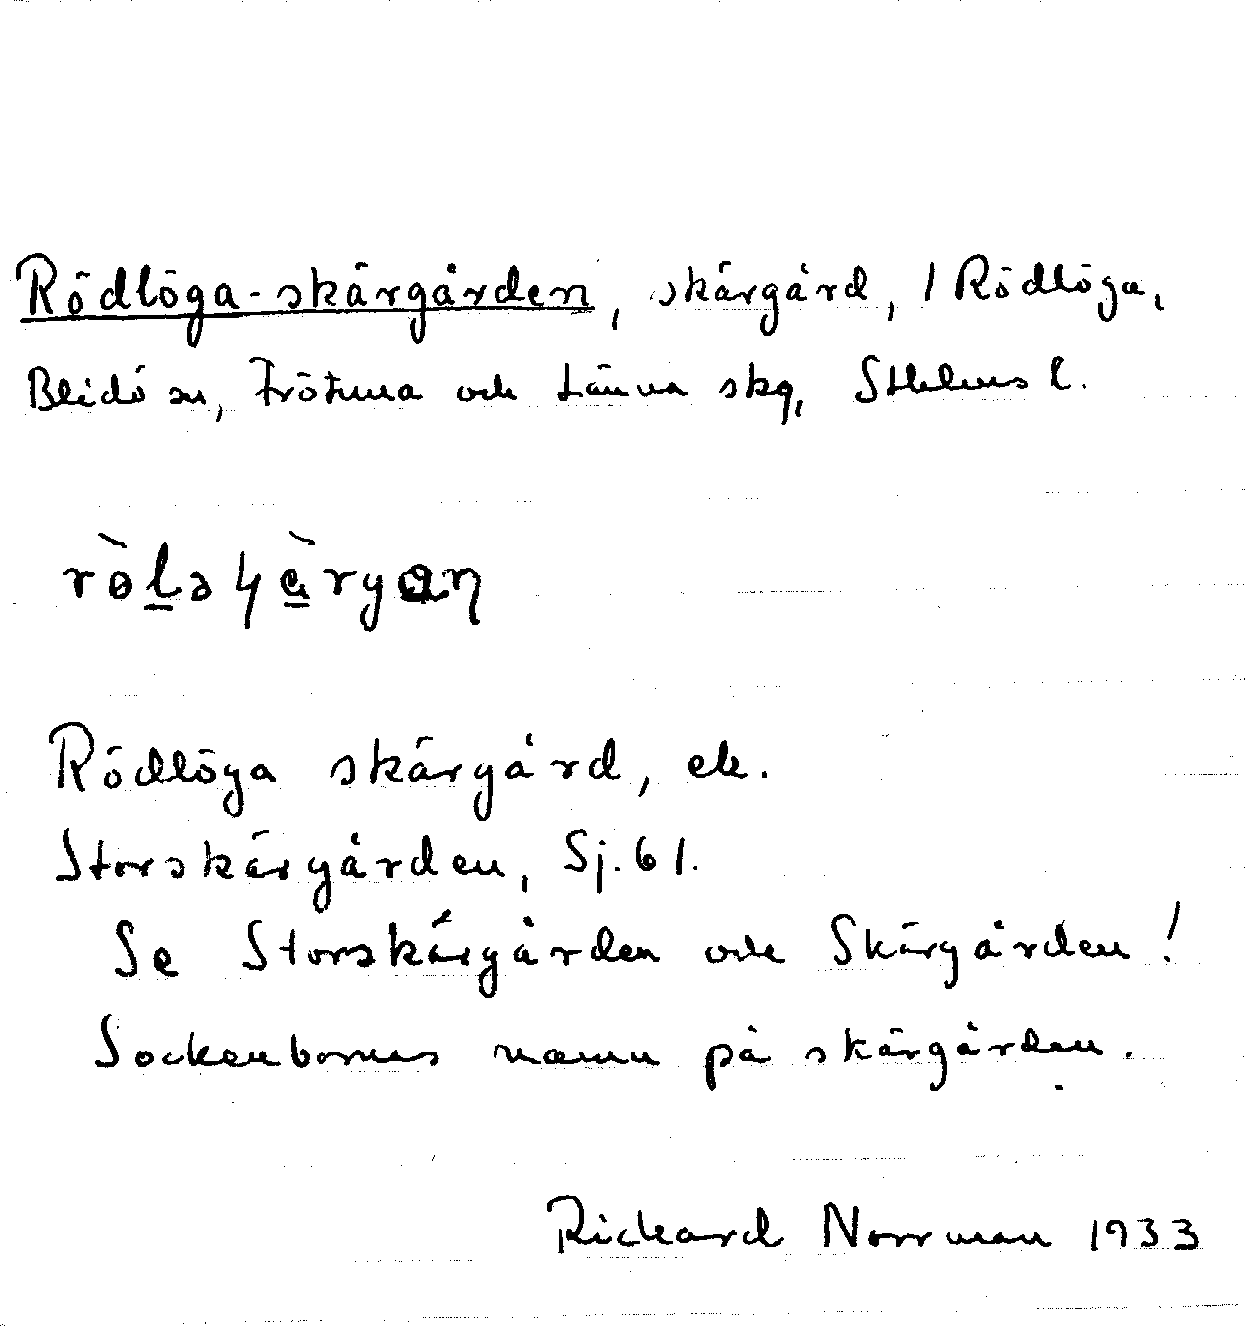 Rödlöga-skärgården, skärgård, i Rödlöga,
Blidö sn, Frötuna och Länna skg, Sthlms l.
rò̀laɧæ̀rgaɳ
Rödlöga skärgård, ek.
Storskärgården, Sj. 61.
Se Storskärgården och Skärgården!
Sockenbornas namn på skärgården.
Rickard Norrman 1933